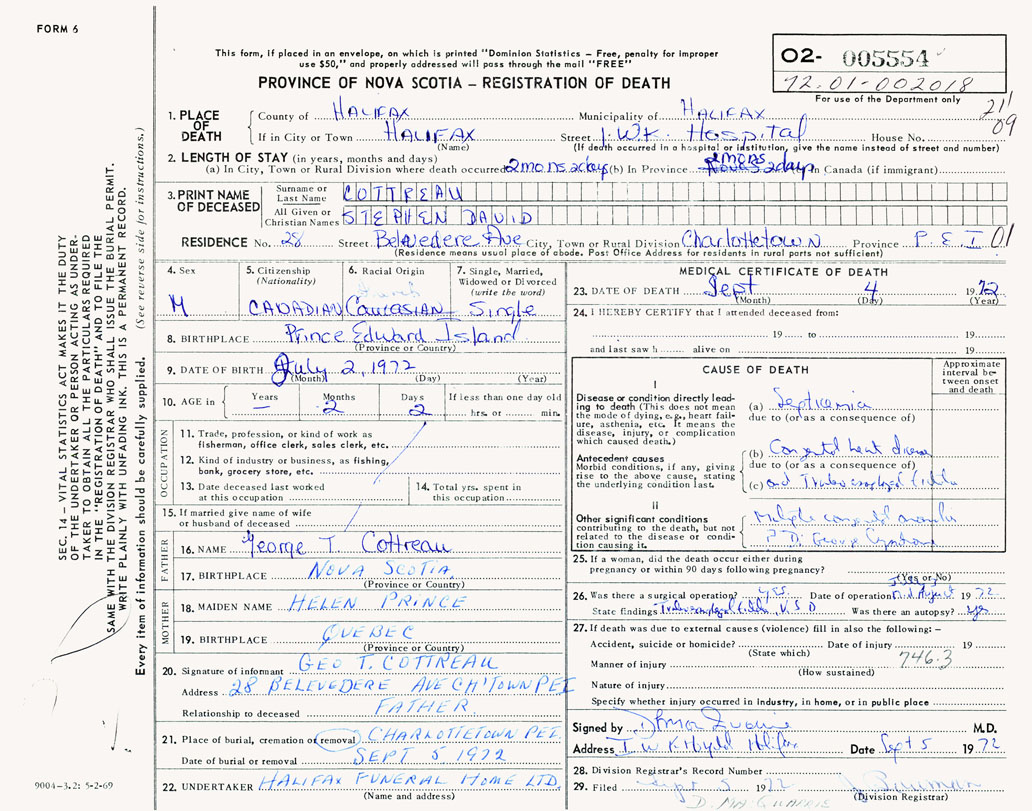 FORM 6
This form, if placed in an envelope, on which is printed "Dominion Statistics – Free, penalty for improper
use $50," and properly addressed will pass through the mail "FREE"
PROVINCE OF NOVA SCOTIA – REGISTRATION OF DEATH
02- 005554
72.01-002018
For use of the Department only
211
09
1. PLACE OF DEATH
County of HALIFAX Municipality of HALIFAX
If in City or Town HALIFAX Street I.W.K. Hospital House No.
(Name) (If death occurred in a hospital or institution, give the name instead of street and number)
2. LENGTH OF STAY (in years, months and days)
(a) In City, Town or Rural Division where death occurred 2mons 2days (b) In Province 2mons 2days In Canada (if immigrant)
3. PRINT NAME OF DECEASED
Surname or Last Name COTTREAU
All Given or Christian Names STEPHEN DAVID
RESIDENCE No. 28 Street Belvedere Ave City, Town or Rural Division Charlottetown Province P.E.I 01
(Residence means usual place of abode. Post Office Address for residents in rural parts not sufficient)
4. Sex
M
5. Citizenship
(Nationality)
CANADIAN
6. Racial Origin
French
Caucasian
7. Single, Married,
Widowed or Divorced
(write the word)
Single
8. BIRTHPLACE Prince Edward Island
(Province or Country)
9. DATE OF BIRTH July 2, 1972
(Month) (Day) (Year)
10. AGE in Years – Months 2 Days 2 If less than one day old
hrs. or min.
OCCUPATION
11. Trade, profession, or kind of work as
fisherman, office clerk, sales clerk, etc.
12. Kind of industry or business, as fishing,
bank, grocery store, etc.
13. Date deceased last worked
at this occupation
14. Total yrs. spent in
this occupation
15. If married give name of wife
or husband of deceased
FATHER
16. NAME George T. Cottreau
17. BIRTHPLACE NOVA SCOTIA
(Province or Country)
MOTHER
18. MAIDEN NAME HELEN PRINCE
19. BIRTHPLACE QUEBEC
(Province or Country)
20. Signature of informant GEO T. COTTREAU
Address 28 BELEVEDERE AVE CH'TOWN PEI
Relationship to deceased FATHER
21. Place of burial, cremation or removal CHARLOTTETOWN PEI
Date of burial or removal SEPT 5 1972
22. UNDERTAKER HALIFAX FUNERAL HOME LTD.
(Name and address)
MEDICAL CERTIFICATE OF DEATH
23. DATE OF DEATH Sept 4 1972
(Month) (Day) (Year)
24. I HEREBY CERTIFY that I attended deceased from:
19 to 19
and last saw h alive on 19
CAUSE OF DEATH
Approximate
interval be-
tween onset
and death
I
Disease or condition directly lead-
ing to death (This does not
mean the mode of dying, e.g., heart fail-
ure, asthenia, etc. It means the
disease, injury, or complication
which caused death.)
(a) Septicemia
due to (or as a consequence of)
Antecedent causes
Morbid conditions, if any, giving
rise to the above cause, stating
the underlying condition last.
(b) Congenital heart disease
due to (or as a consequence of)
(c) and
II
Other significant conditions
contributing to the death, but not
related to the disease or condi-
tion causing it.
Multiple congenital anomalies
? Di George Syndrome
25. If a woman, did the death occur either during
pregnancy or within 90 days following pregnancy?
(Yes or No)
26. Was there a surgical operation? yes Date of operation mid August 1972
State findings V S D Was there an autopsy? yes
27. If death was due to external causes (violence) fill in also the following: –
Accident, suicide or homicide? Date of injury 19
(State which)
746.3
Manner of injury
(How sustained)
Nature of injury
Specify whether injury occurred in industry, in home, or in public place
Signed by M.D.
Address I W K Hosptl Halifax Date Sept 5 1972
28. Division Registrar's Record Number
29. Filed Sept 5 1972
(Division Registrar)
SEC. 14 – VITAL STATISTICS ACT MAKES IT THE DUTY
OF THE UNDERTAKER OR PERSON ACTING AS UNDER-
TAKER TO OBTAIN ALL THE PARTICULARS REQUIRED
IN THE "REGISTRATION OF DEATH" AND TO FILE THE
SAME WITH THE DIVISION REGISTRAR WHO SHALL ISSUE THE BURIAL PERMIT.
WRITE PLAINLY WITH UNFADING INK. THIS IS A PERMANENT RECORD.
Every item of information should be carefully supplied. (See reverse side for instructions.)
9004-3.2: 5-2-69